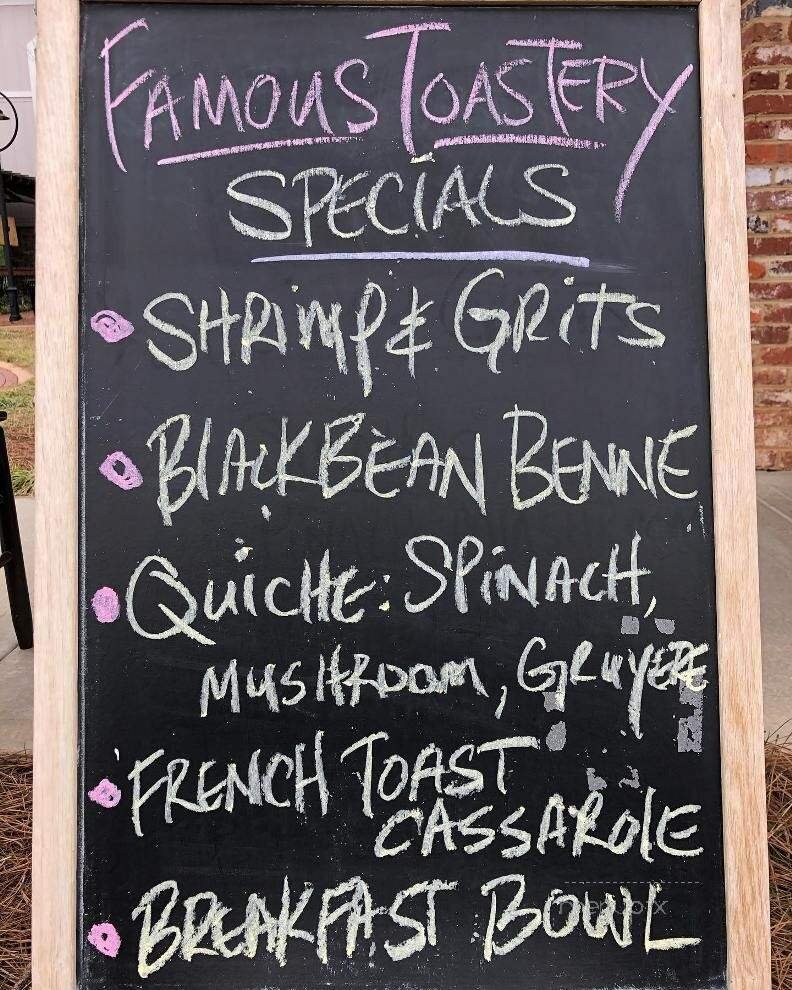 FAMOUS TOASTERY
SPECIALS
SHRIMP & GRITS
BLACKBEAN BENNE
QUICHE: SPINACH,
MUSHROOM, GRUYERE
FRENCH TOAST
CASSAROLE
BREAKFAST BOWL